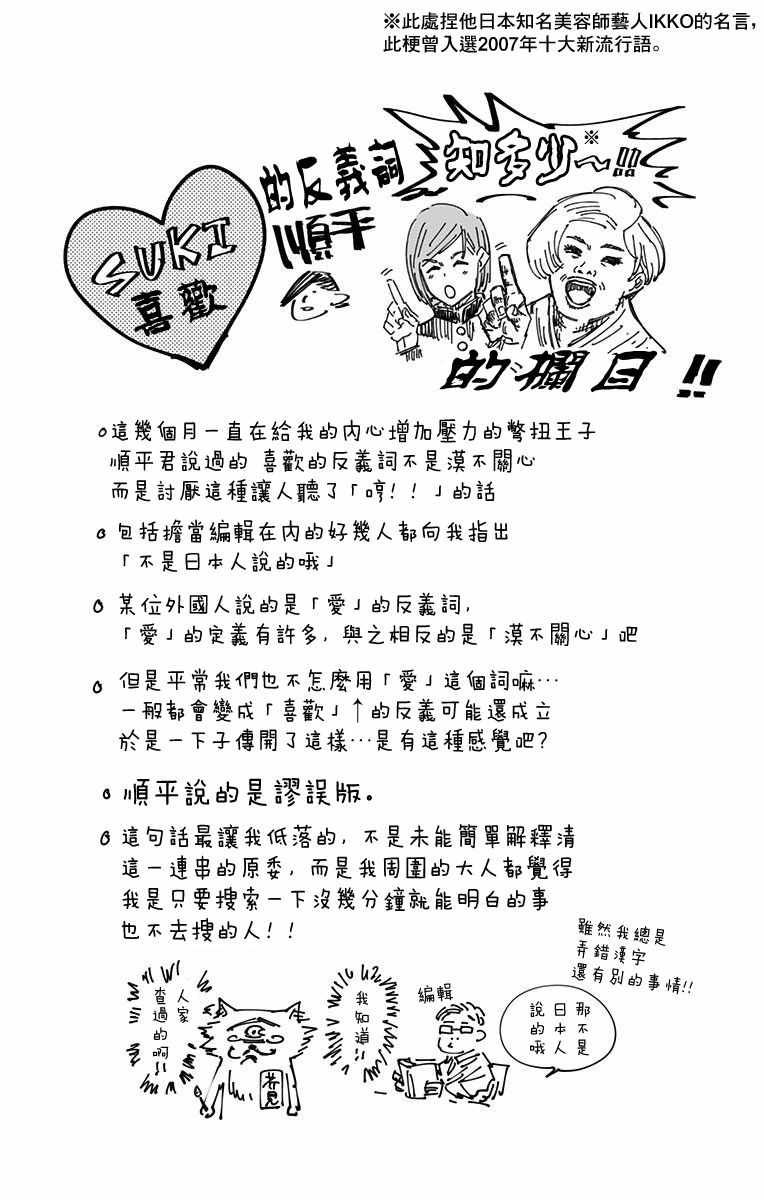 ※此處捏他日本知名美容師藝人IKKO的名言，
此梗曾入選2007年十大新流行語。
SUKI
喜歡
的反義詞
知多少～!!!※
順平
的欄目!!
○這幾個月一直在給我的內心增加壓力的彆扭王子
順平君說過的 喜歡的反義詞不是漠不關心
而是討厭這種讓人聽了「哼！！」的話
○包括擔當編輯在內的好幾人都向我指出
「不是日本人說的哦」
○某位外國人說的是「愛」的反義詞，
「愛」的定義有許多，與之相反的是「漠不關心」吧
○但是平常我們也不怎麼用「愛」這個詞嘛…
一般都會變成「喜歡」↑的反義可能還成立
於是一下子傳開了這樣…是有這種感覺吧？
○順平說的是謬誤版。
○這句話最讓我低落的，不是未能簡單解釋清
這一連串的原委，而是我周圍的大人都覺得
我是只要搜索一下沒幾分鐘就能明白的事
也不去搜的人！！
雖然我總是
弄錯漢字
還有別的事情!!
人家
查過的啊!!
芥見
我知道!!
編輯
那不是
日本人
說的哦